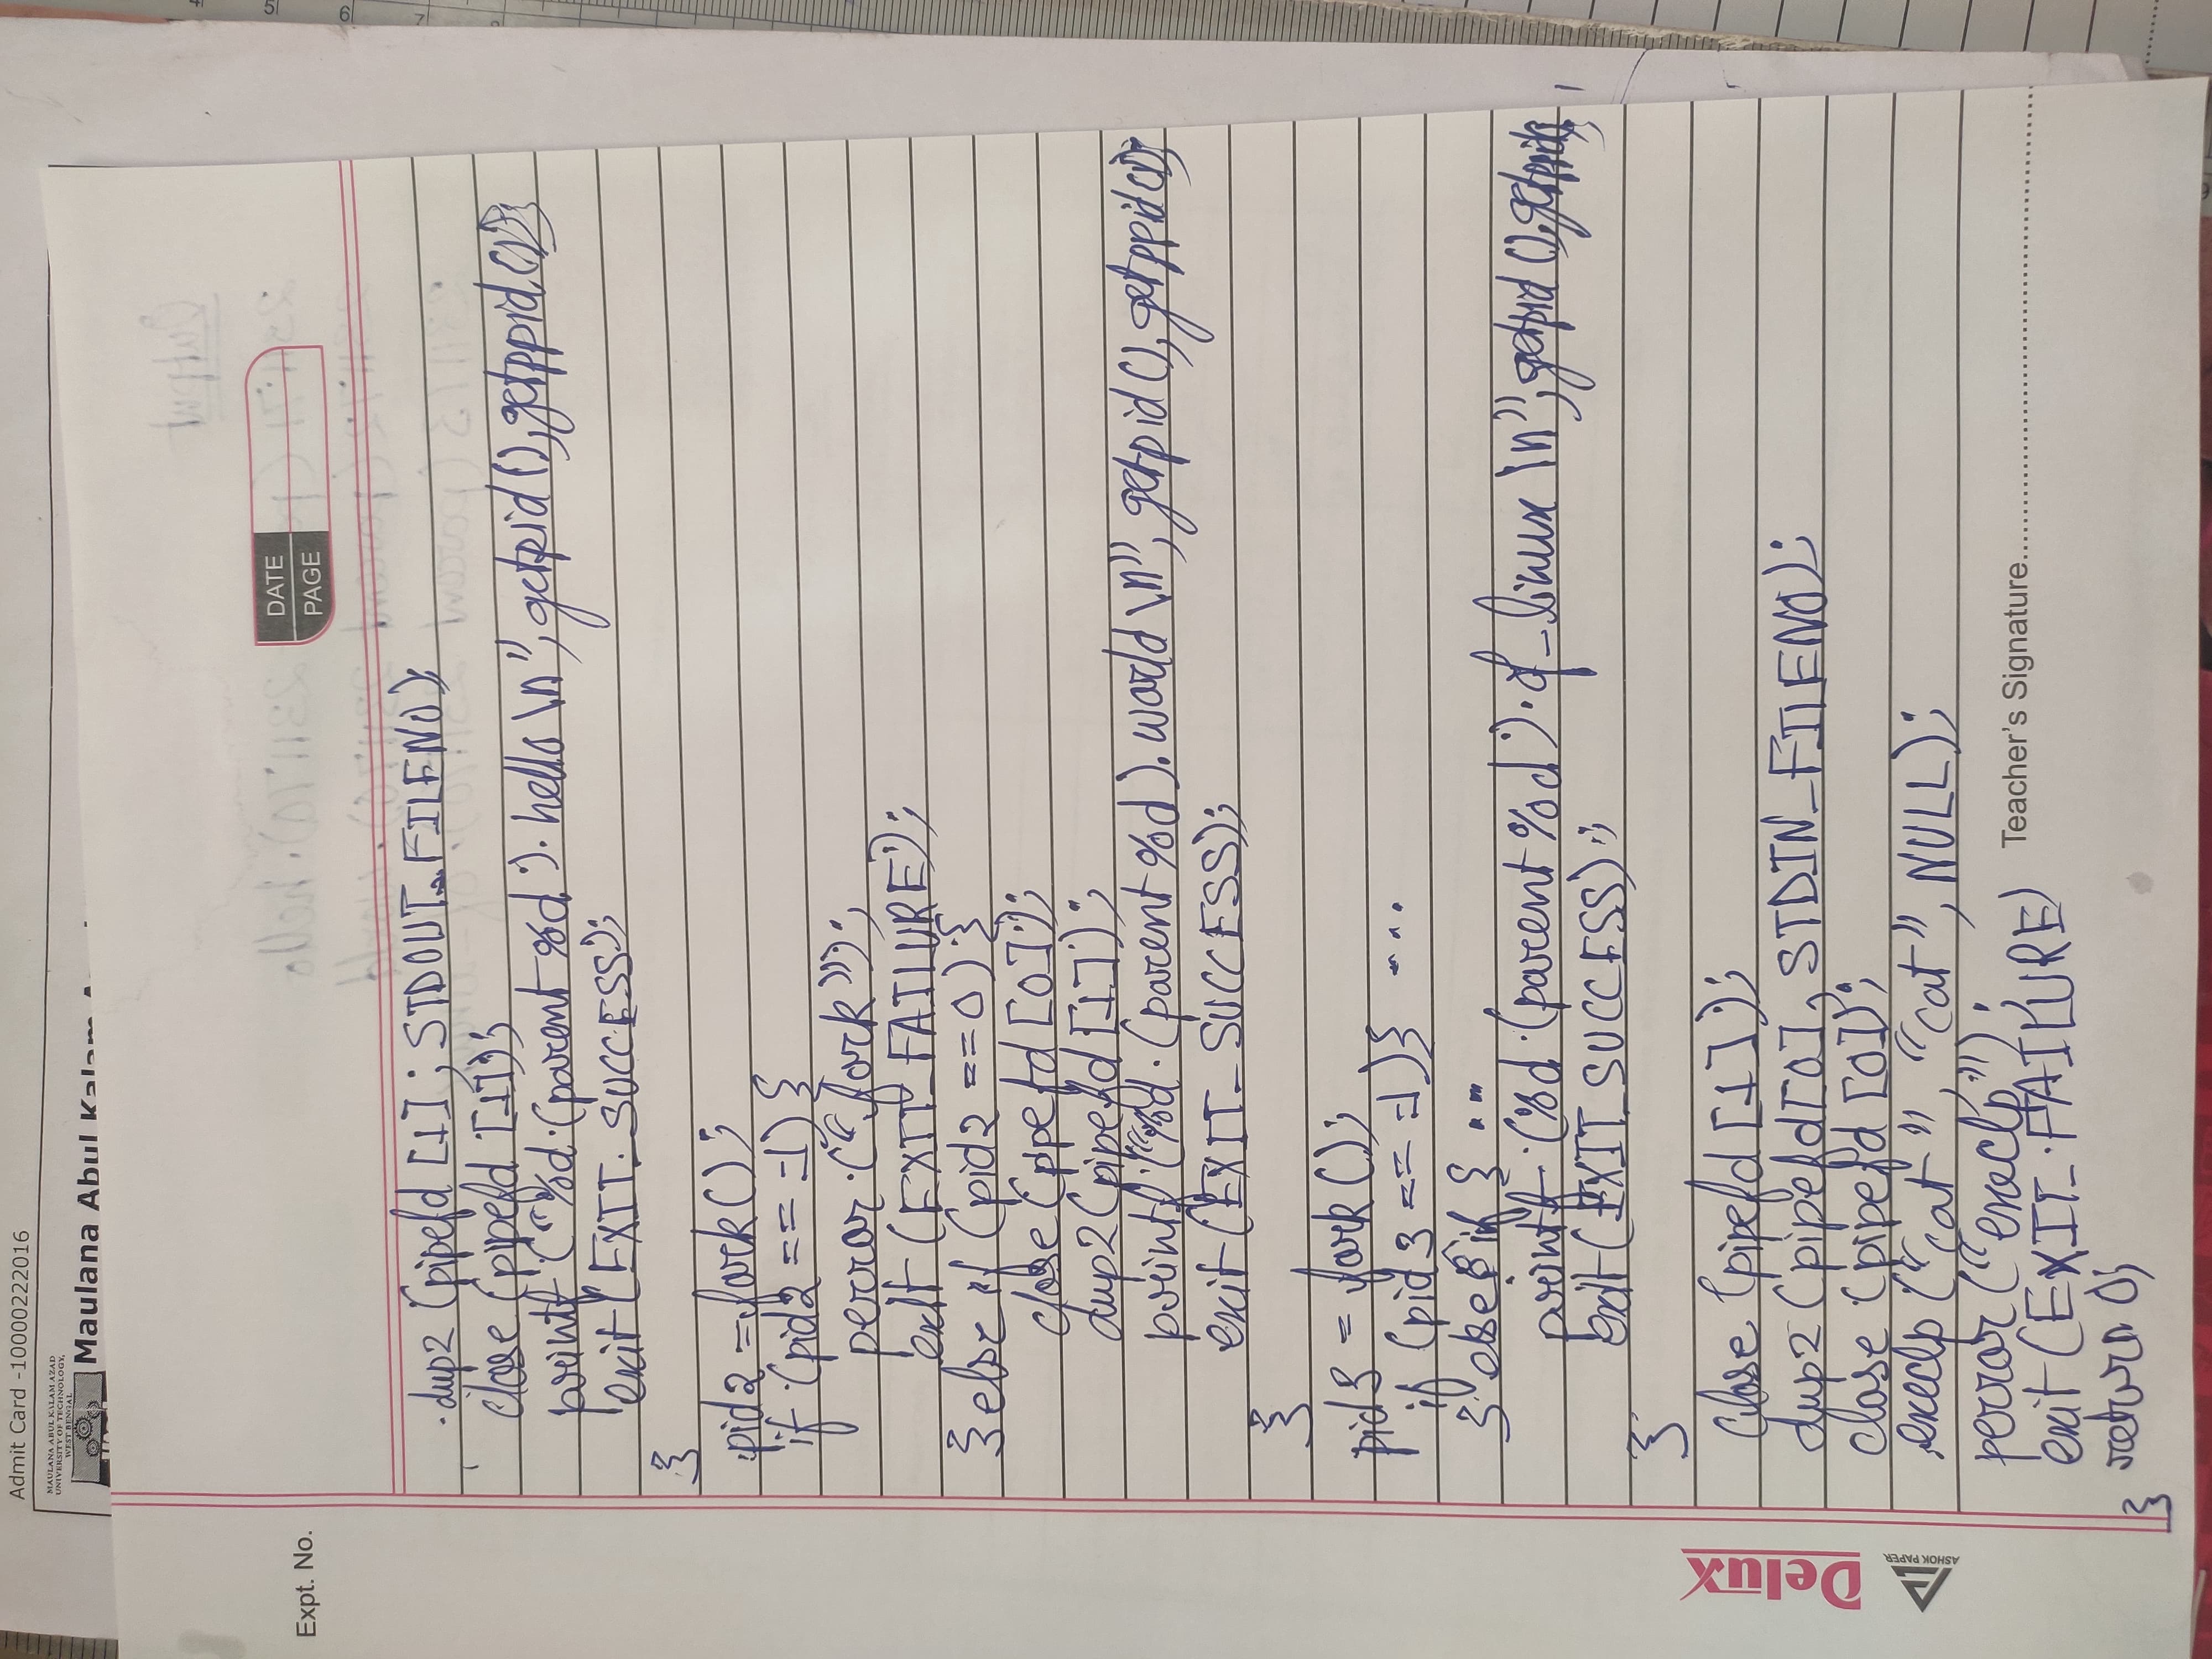 Admit Card -10000222016
MAULANA ABUL KALAM AZAD
UNIVERSITY OF TECHNOLOGY,
WEST BENGAL
Maulana Abul Kalam
Expt. No.
DATE
PAGE
dup2 (pipefd [1] ; STDOUT_FILENO);
close (pipefd [1]);
printf ("%d (parent %d). hello \n", getpid (), getppid ());
exit (EXIT_SUCCESS);
}
pid2 = fork ();
if (pid2 == -1) {
perror ("fork");
exit (EXIT_FAILURE);
} else if (pid2 == 0) {
close (ppefd [0]);
dup2 (pipefd [1]);
printf ("%d. (parent %d). world \n", getpid (), getppid ());
exit (EXIT_SUCCESS);
}
pid3 = fork ();
if (pid3 == -1) } ...
} else if { ...
printf (%d (parent %d). of_linux \n", getpid (), getppid
exit (EXIT_SUCCESS);
}
close (pipefd [1]);
dup2 (pipefd[0], STDIN_FILENO);
close (pipefd [0]);
execlp ("cat", "cat", NULL);
perror ("execlp");
exit (EXIT_FAILURE)
return 0;
}
Teacher's Signature
Delux
ASHOK PAPER